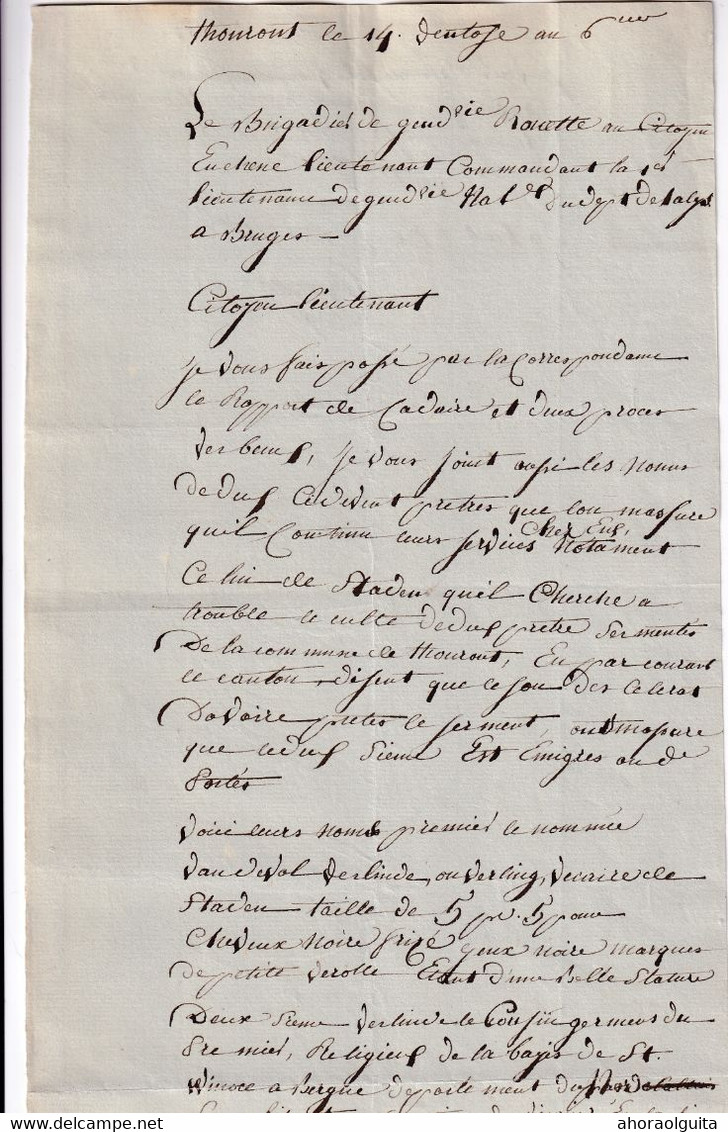 Thouront le 14. Ventose an 6me
Le Brigadier de gendrie Rouette au Citoyen
Euchene lieutenant Commandant la 1er
lieutenance de gendrie Natle du dept de la lys
a Bruges —
Citoyen lieutenant
je vous fais passé par la Correspondance
le Rapport de Cadaire et deux proces
verbeaux, je vous joint aussi les noms
de deux cidevent pretres que lon massure
quil Continu leurs services Cher Eux, Notament
Celui de Staden quil Cherche a
trouble le culte de deux pretre Sermentés
De la commune de thouront, En par courant
le canton, disent que ce son des celerat
Davoire pretes le serment, on massure
que cedeux Sieme Est Emigres ou de
Portés
Voici leurs noms premier le nommée
Vandevol Verlinde, ou verling, vicaire de
Staden taille de 5 pi. 5 pouce
Cheveux Noire frizé yeux noire marques
de petite verolle Etant d'une Belle Stature
Deux Sieme Verlinde le Cousin germens du
Premier, Religieux de la bays de St.
Winoce a Bergue departement du Nord